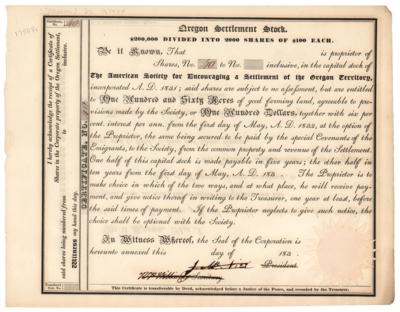 Oregon Settlement Stock.
$200,000 DIVIDED INTO 2000 SHARES OF $100 EACH.
Be it Known, That is proprietor of
Shares, No. 10 to No. inclusive, in the capital stock of
The American Society for Encouraging a Settlement of the Oregon Territory,
incorporated A. D. 1831; said shares are subject to no assessment, but are entitled
to One Hundred and Sixty Acres of good farming land, agreeable to pro-
visions made by the Society, or One Hundred Dollars, together with six per
cent. interest per ann. from the first day of May, A. D. 1832, at the option of
the Proprietor, the same being secured to be paid by the special Covenants of the
Emigrants, to the Society, from the common property and revenue of the Settlement.
One half of this capital stock is made payable in five years; the other half in
ten years from the first day of May, A. D. 183 . The Proprietor is to
make choice in which of the two ways, and at what place, he will receive pay-
ment, and give notice thereof in writing to the Treasurer, one year at least, before
the said times of payment. If the Proprietor neglects to give such notice, the
choice shall be optional with the Society.
In Witness Whereof, the Seal of the Corporation is
hereunto annexed this day of 183 .
President
This Certificate is transferable by Deed, acknowledged before a Justice of the Peace, and recorded by the Treasurer.
CERTIFICATE, No.
I hereby acknowledge the receipt of a Certificate of
Shares in the Corporate property of the Oregon Settlement,
said shares being numbered from inclusive.
Witness my hand this day.